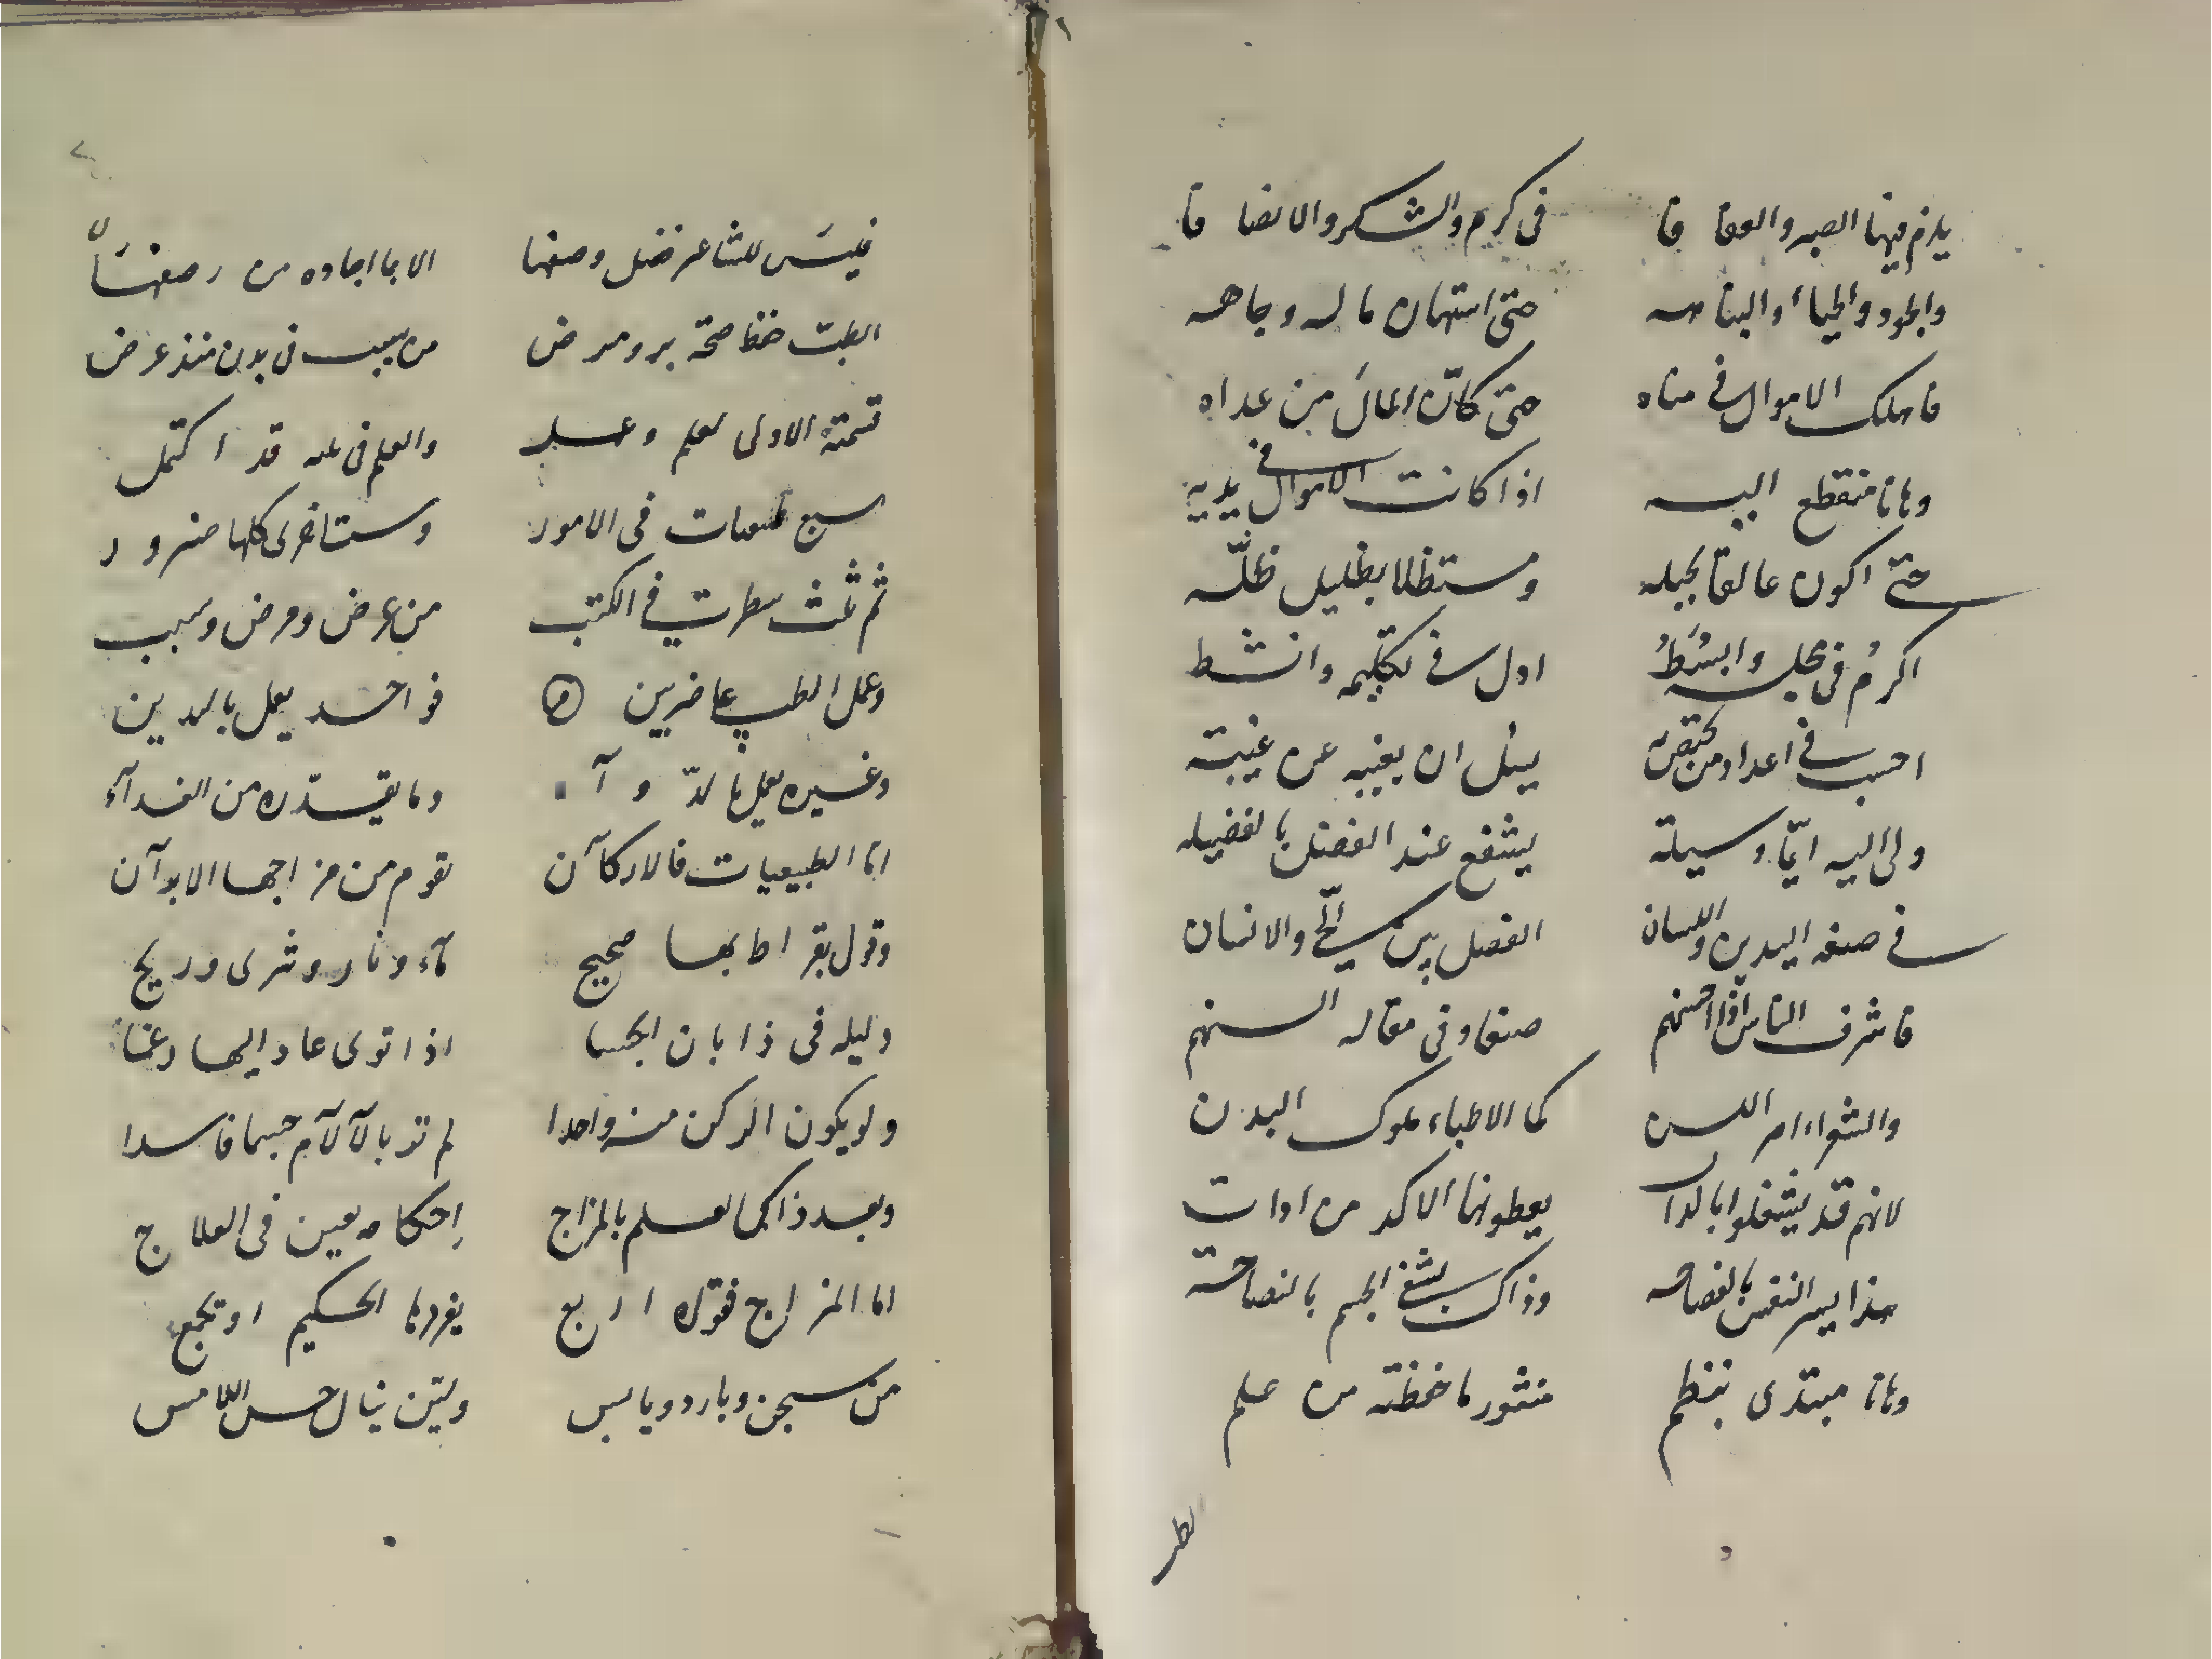 يلزم فيها الصبر والعفا فا    في كرم والشكر والانصا فا
والجود والحياء والنباهه    حتى استهان ماله وجاهه
فاهلك الاموال في مناه    حتى كانّ المالَ من عداه
وهانا منقطع اليه    اذا كانت الاموال في يديه
حتى اكون عالقا بحبله    ومستظلا بظليل ظلّه
اكرمُ في مجلسه وابسُطُ    اول في تكليمه وانشط
احسب في اعداد من    يسل ان يغيبه عن غيبته
ولى اليه ايّما وسيلة    يشفع عند الفضل بالفضيله
في صنعه اليدين واللسان    الفضل بين الحي والانسان
فاشرف الناس اذا احسنهم    صنعا وفى مقاله السنهم
والشعراء امراء اللسن    كما الاطباء ملوك البدن
لانهم قد يشغلوا بالذات    يعطونها الاكد من ادات
هذا يسر النفس بالفصاحه    وذاك يشفي الجسم بالنصاحة
وهانا مبتدى بنظم    منثور ما حفظته من علم
الطب
فليسَ للشاعر فضل وصفها    الا بما اجاده من رصفها
الطبّ حفظ صحة برو مرض    من سبب في بدن منذ عرض
قسمته الاولى لعلم وعمل    والعلم في ثلثه قد اكتمل
سبع طبيعات في الامور    وست اخرى كلها ضرور
ثم ثلث سطرت في الكتب    من عرض ومرض وسبب
وعمل الطب على ضربين    فواحد يعمل باليدين
وغيره يعمل بالدّوآ    وما يقدّره من الغدآء
امّا الطبيعيات فالاركآن    تقوم من مزاجها الابدآن
وقول بقراط بها صحيح    مآء ونار وثرى وريح
دليله في ذا بان الجسما    اذا توى عاد اليها رغما
ولو يكون الركن منه واحدا    لم تر بالآلآم جسما فاسدا
وبعد ذاك العلم بالمزاج    احكامه يعين في العلاج
اما المزاج فقواه اربع    يفردها الحكيم او تجمع
من سخن وبارد ويابس    وليّن ينال حس اللامس